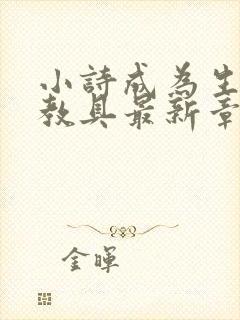 小詩成為生
教具最新章
金暉